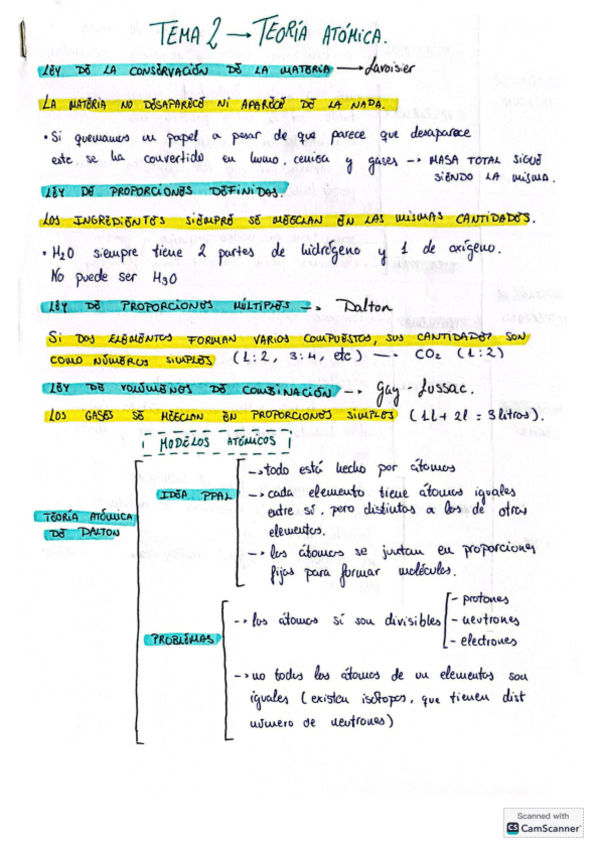 TEMA 2 → TEORÍA ATÓMICA.
LEY DE LA CONSERVACIÓN DE LA MATERIA → Lavoisier
LA MATERIA NO DESAPARECE NI APARECE DE LA NADA.
• Si quemamos un papel a pesar de que parece que desaparece
este se ha convertido en humo, ceniza y gases → MASA TOTAL SIGUE
SIENDO LA MISMA.
LEY DE PROPORCIONES DEFINIDAS.
LOS INGREDIENTES SIEMPRE SE MEZCLAN EN LAS MISMAS CANTIDADES.
• H₂O siempre tiene 2 partes de hidrógeno y 1 de oxígeno.
No puede ser H₃O
LEY DE PROPORCIONES MÚLTIPLES → Dalton
SI DOS ELEMENTOS FORMAN VARIOS COMPUESTOS, SUS CANTIDADES SON
COMO NÚMEROS SIMPLES (1:2, 3:4, etc) → CO₂ (1:2)
LEY DE VOLÚMENES DE COMBINACIÓN → Gay-Lussac.
LOS GASES SE MEZCLAN EN PROPORCIONES SIMPLES (1L + 2L = 3 litros).
MODELOS ATÓMICOS
TEORÍA ATÓMICA
DE DALTON
IDEA PPAL
→ todo está hecho por átomos
→ cada elemento tiene átomos iguales
entre sí, pero distintos a los de otros
elementos.
→ los átomos se juntan en proporciones
fijas para formar moléculas.
PROBLEMAS
→ los átomos sí son divisibles
- protones
- neutrones
- electrones
→ no todos los átomos de un elementos son
iguales (existen isótopos, que tienen dist
número de neutrones)
Scanned with
CS CamScanner